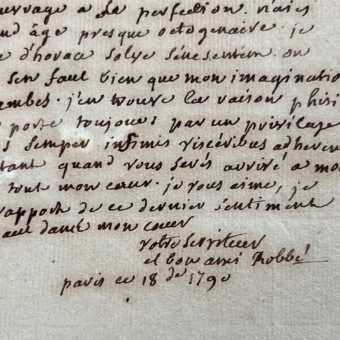 ouvrage a la perfection. vaies
nd âge presque octogenaire. je
d'horace solve senescentem. on
s'en faut bien que mon imaginatio
embes. j'en trouve la raison phisi
porte toujours par un privilege
s semper infimis visceribus adheren
tant quand vous serés arrivé a mo
tout mon cœur. je vous aime, je
rapport de ce dernier sentiment
dame mon cœur
votre serviteur
et bon ami Robbé
paris ce 18 de 1790